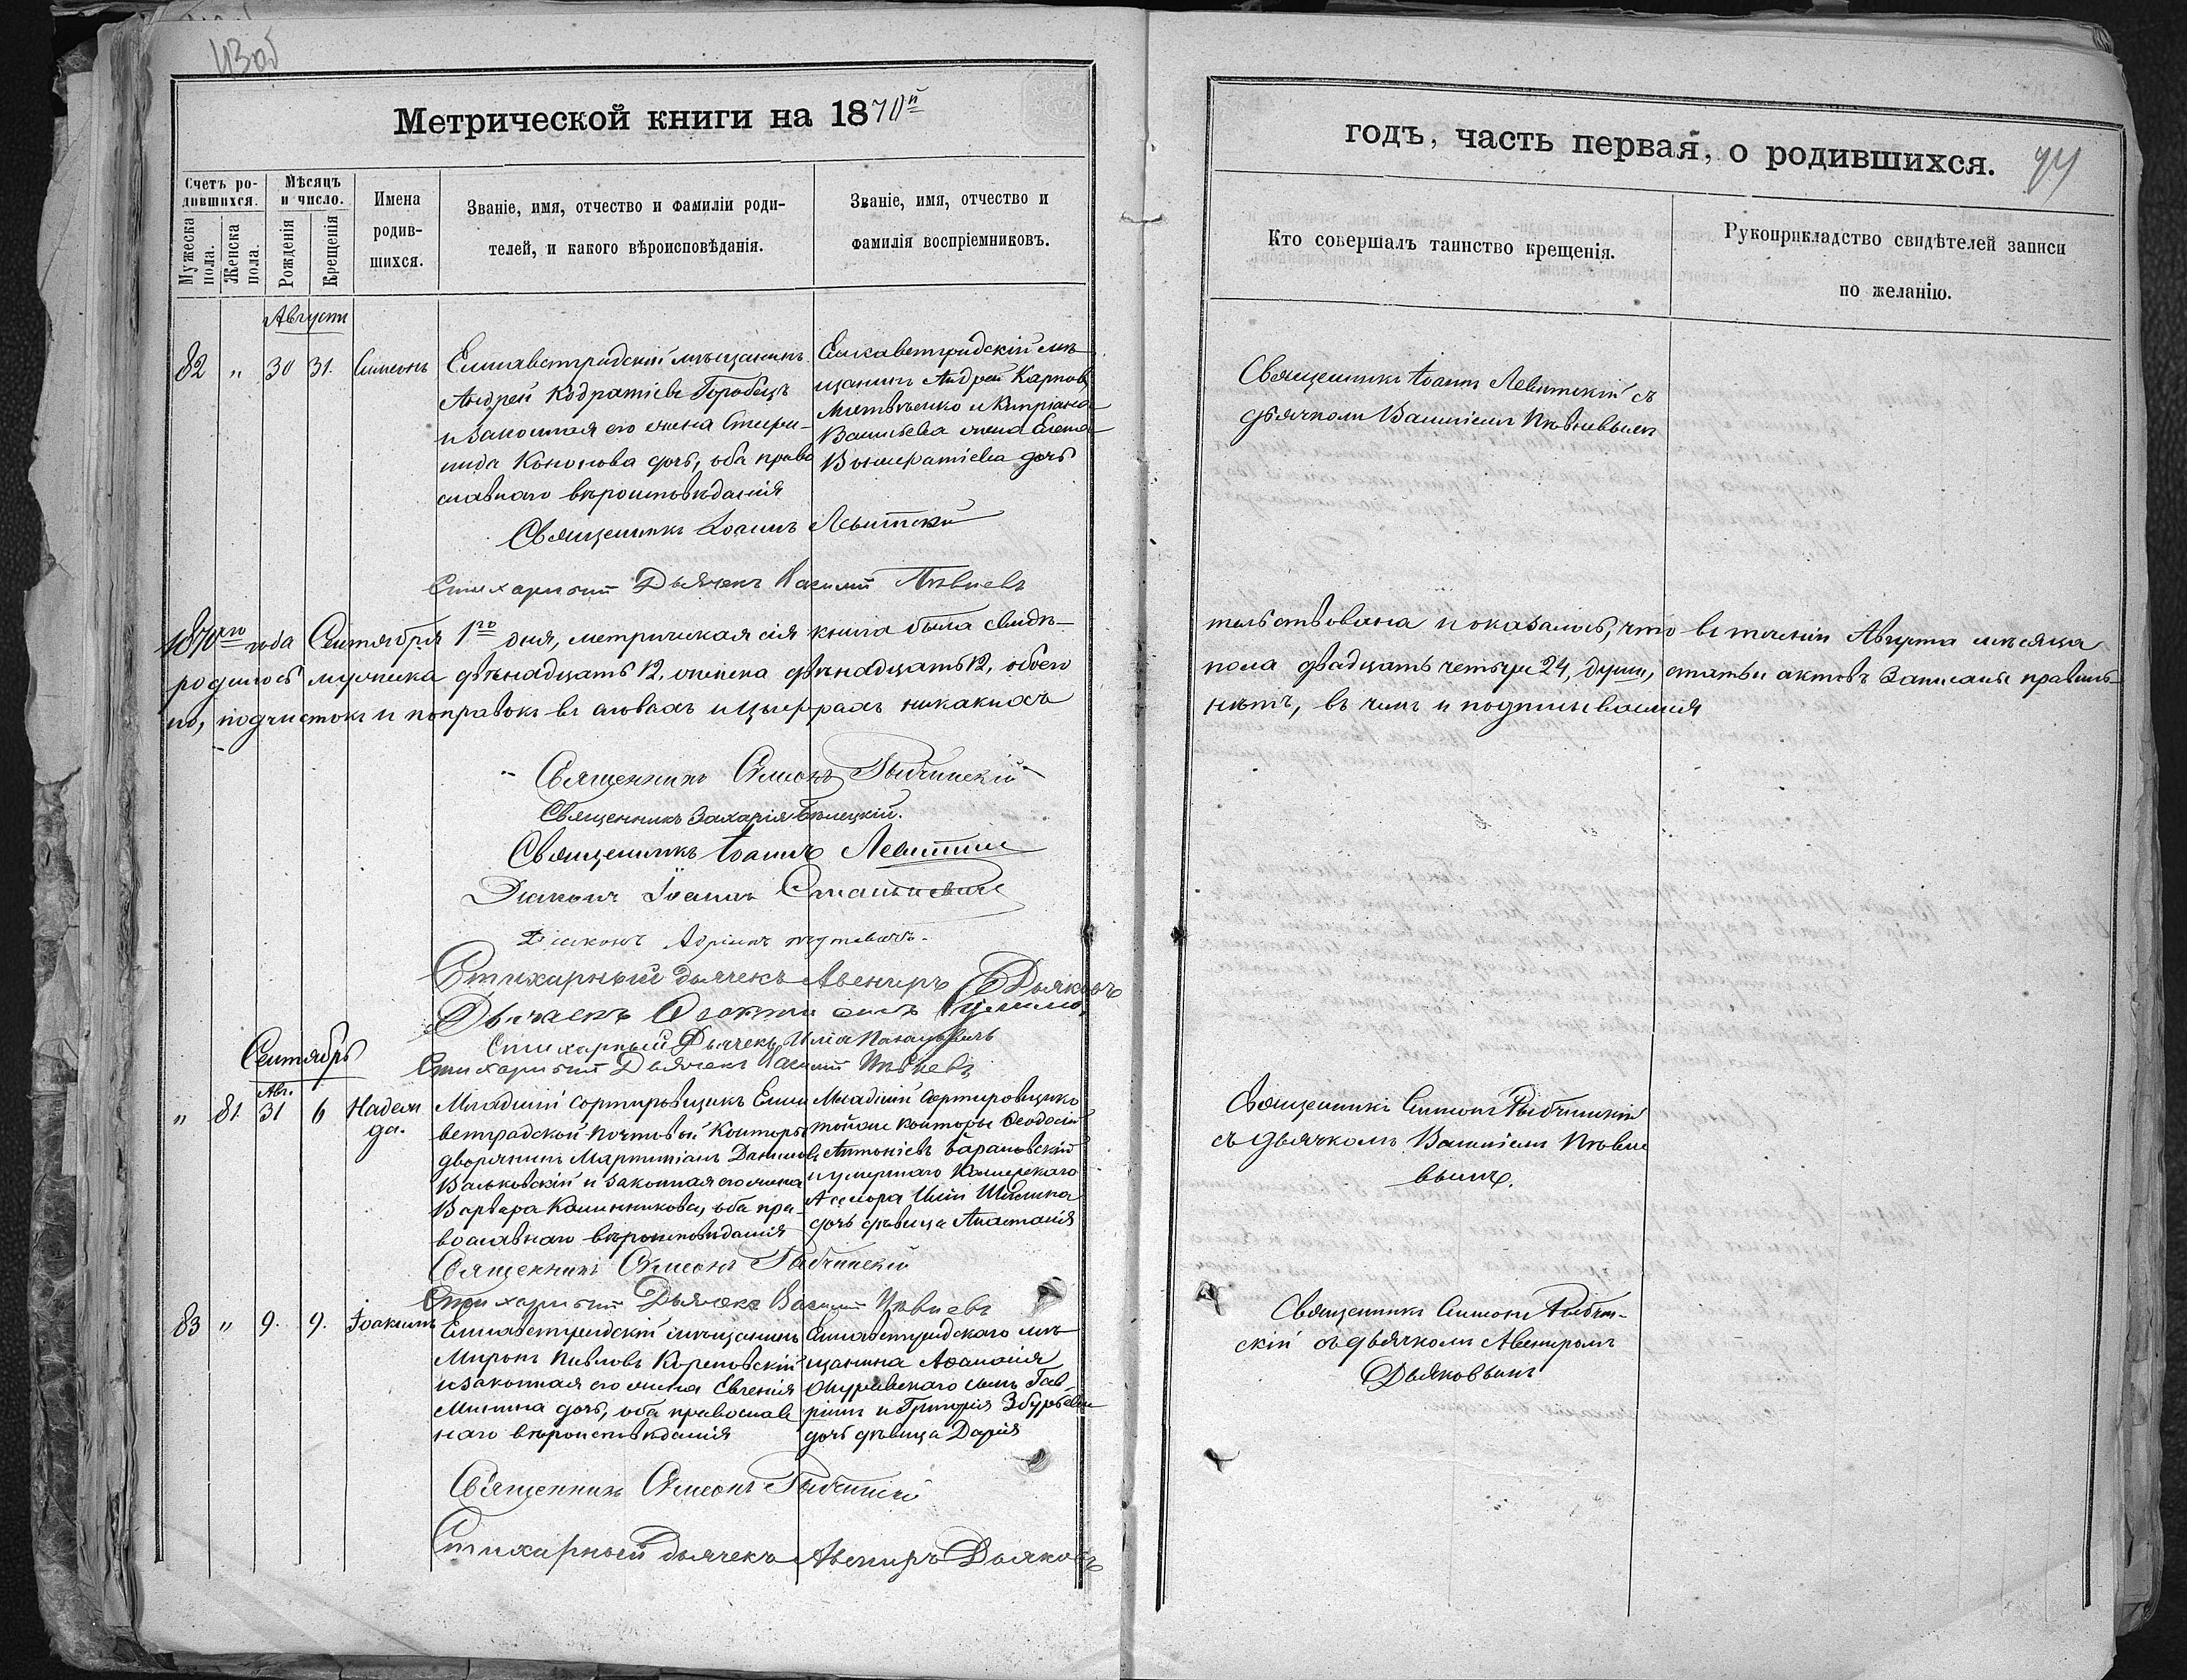 43об
Метрической книги на 1870й
Счетъ ро-
дившихся.
Мѣсяцъ
и число.
Мужеска
пола.
Женска
пола.
Рожденія
Крещенія
Имена
родив-
шихся.
Званіе, имя, отчество и фамиліи роди-
телей, и какого вѣроисповѣданія.
Званіе, имя, отчество и
фамилія воспріемниковъ.
годъ, часть первая, о родившихся.
44
Кто совершалъ таинство крещенія.
Рукоприкладство свидѣтелей записи
по желанію.
Августъ
82 " 30 31. Симеонъ
Елисаветградскій мѣщанинъ
Андрей Кодратіевъ Горобецъ
и законная его жена Стефа-
нида Кононова дочь, оба право
славнаго вѣроисповѣданія
Елисаветградскій мѣ
щанинъ Андрей Карповъ
и Кипріана
Васильева жена
дочь
Священникъ Іоаннъ Левитскій съ
дьячкомъ Василіемъ Пѣвневымъ
Священникъ Іоаннъ Левитскій
Стихарный Дьячекъ Василий Пѣвневъ
1870го года Сентября 1го дня, метрическая сія книга была свидѣ-
тельствована и оказалось, что въ теченіи Августа мѣсяца
родилось мужеска двѣнадцать 12, женска двѣнадцать 12, обоего
пола двадцать четыре 24, души, статьи актовъ записаны правиль-
но, подчистокъ и поправокъ въ словахъ и цыфрахъ никакихъ
нѣтъ, въ чемъ и подписываемся
Священникъ Симеонъ Рыбчинскій
Священникъ Захарія Бѣлецкій.
Священникъ Іоаннъ Левитскій
Диаконъ Іоаннъ
Діаконъ
Стихарный дьячекъ Авениръ Дьяковъ
Дьячекъ
Стихарный Дьячекъ Илія
Стихарный Дьячекъ Василий Пѣвневъ
Сентябрь
Авг.
" 81. 31 6 Надеж
да.
Младшій сортировщикъ Елиса
ветградской почтовой Конторы
дворянинъ Мартиніанъ Данилов
Вальковскій и законная его жена
Варвара Калинникова, оба пра-
вославнаго вѣроисповѣданія
Младшій сортировщикъ
тойже конторы Ѳеодосій
Антоніевъ Барановскій
и умершаго Коллежскаго
Ассесора Иліи
дочь дѣвица Анастасія
Священникъ Симеонъ Рыбчинскій
съ дьячкомъ Василіемъ Пѣвне
вымъ.
Священникъ Симеонъ Рыбчинскій
Стихарный Дьячекъ Василий Пѣвневъ
83 " 9. 9. Іоакимъ
Елисаветградскій мѣщанинъ
Миронъ Павловъ Кореновскій
и законная его жена Евгенія
Минина дочь, оба православ
наго вѣроисповѣданія
Елисаветградскаго мѣ
щанина Аѳанасія
сынъ Гав-
ріилъ и Григорія
дочь дѣвица Дарія
Священникъ Симеонъ Рыбчин-
скій съ дьячкомъ Авениромъ
Дьяковымъ
Священникъ Симеонъ Рыбчинскій
Стихарный дьячекъ Авениръ Дьяковъ